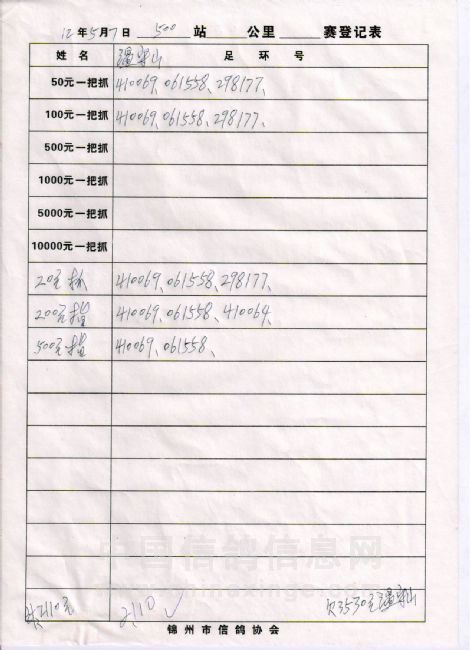 12年5月7日 500 站 公里 赛登记表
姓名 足环号
50元一把抓 410069、061558、298177、
100元一把抓 410069、061558、298177、
500元一把抓
1000元一把抓
5000元一把抓
10000元一把抓
20元抓 410069、061558、298177、
200元指 410069、061558、410064、
500元指 410069、061558、
中国信鸽信息网
2110
锦州市信鸽协会